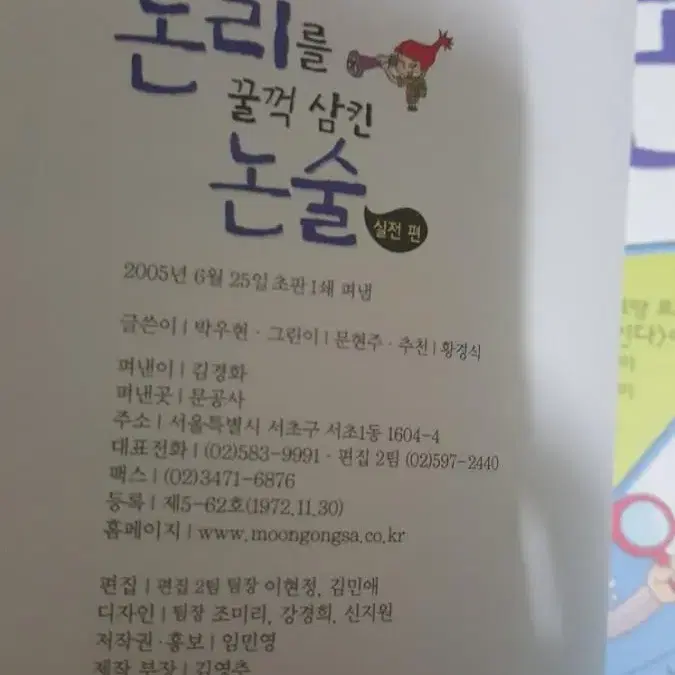 논리를
꿀꺽 삼킨
논술
실전 편
2005년 6월 25일 초판 1쇄 펴냄
글쓴이 | 박우현 · 그린이 | 문현주 · 추천 | 황경식
펴낸이 | 김경화
펴낸곳 | 문공사
주소 | 서울특별시 서초구 서초1동 1604-4
대표전화 | (02)583-9991 · 편집 2팀 (02)597-2440
팩스 | (02)3471-6876
등록 | 제5-62호(1972.11.30)
홈페이지 | www.moongongsa.co.kr
편집 | 편집 2팀 팀장 이현정, 김민애
디자인 | 팀장 조미리, 강경희, 신지원
저작권·홍보 | 임민영
제작 부장 | 김영추